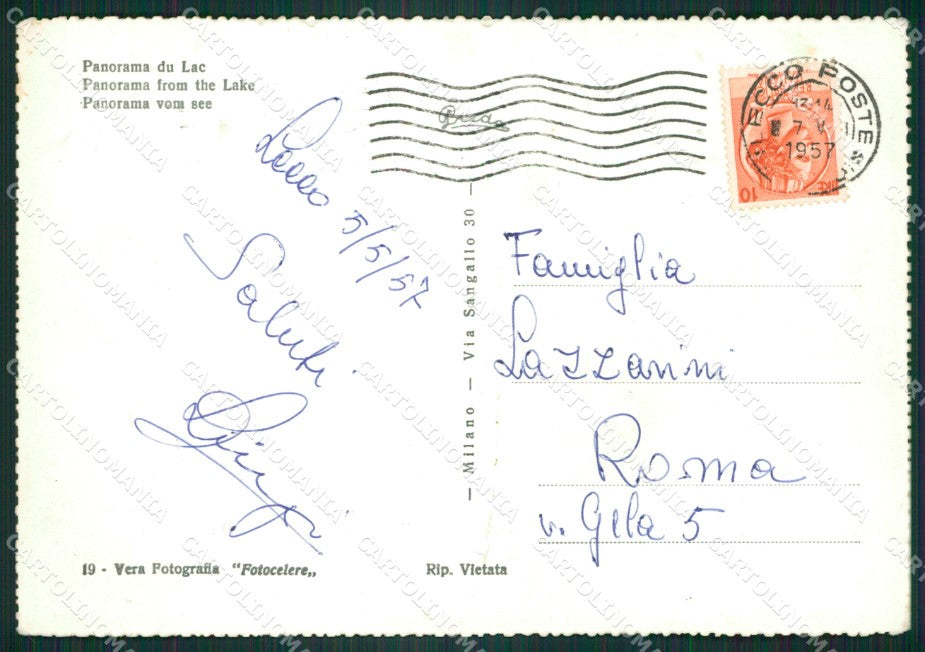 Panorama du Lac
Panorama from the Lake
Panorama vom see
Lecco 5/5/57
Saluti
LECCO POSTE
7 V
1957
LIRE 10
Famiglia
Lazzarini
Roma
v. Gela 5
— Milano — Via Sangallo 30 —
19 - Vera Fotografia "Fotocelere„
Rip. Vietata
CARTOLINOMANIA